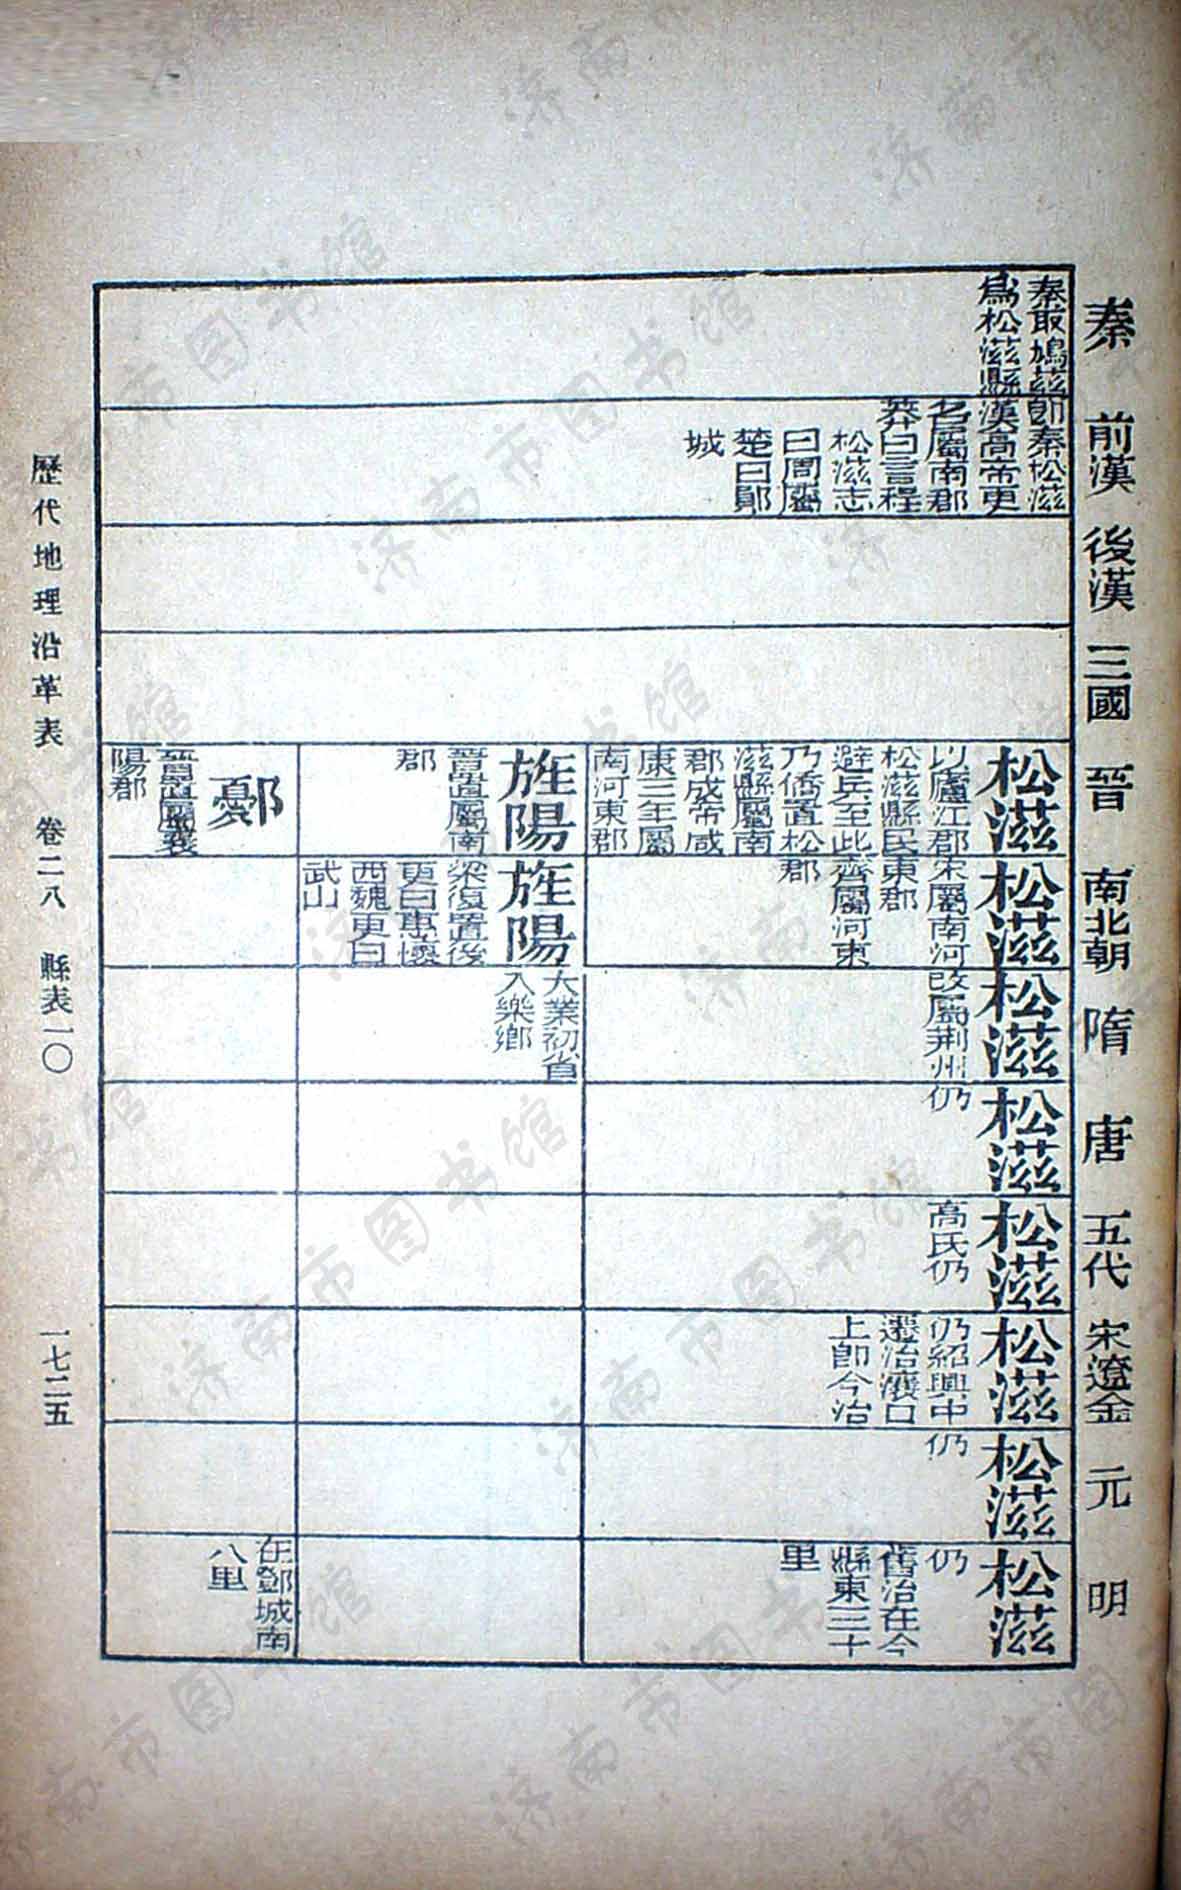 秦
前漢
後漢
三國
晉
南北朝
隋
唐
五代
宋遼金
元
明
秦取鳩茲
爲松滋縣
卽秦松滋
漢高帝更
名屬南郡
莽曰言程
松滋志
曰周屬
楚曰鄖
城
松滋
以廬江郡
松滋縣民
避兵至此
乃僑置松
滋縣屬南
郡成帝咸
康三年屬
南河東郡
旌陽
晉置屬南
郡
鄾
晉置屬襄
陽郡
松滋
宋屬南河
東郡
齊屬河東
郡
旌陽
梁復置後
更曰惠懷
西魏更曰
武山
松滋
改屬荆州
大業初省
入樂鄉
松滋
仍
松滋
高氏仍
松滋
仍紹興中
遷治灢口
上卽今治
松滋
仍
松滋
仍
舊治在今
縣東三十
里
在鄧城南
八里
歷代地理沿革表 卷二八 縣表一〇 一七二五
济南市图书馆